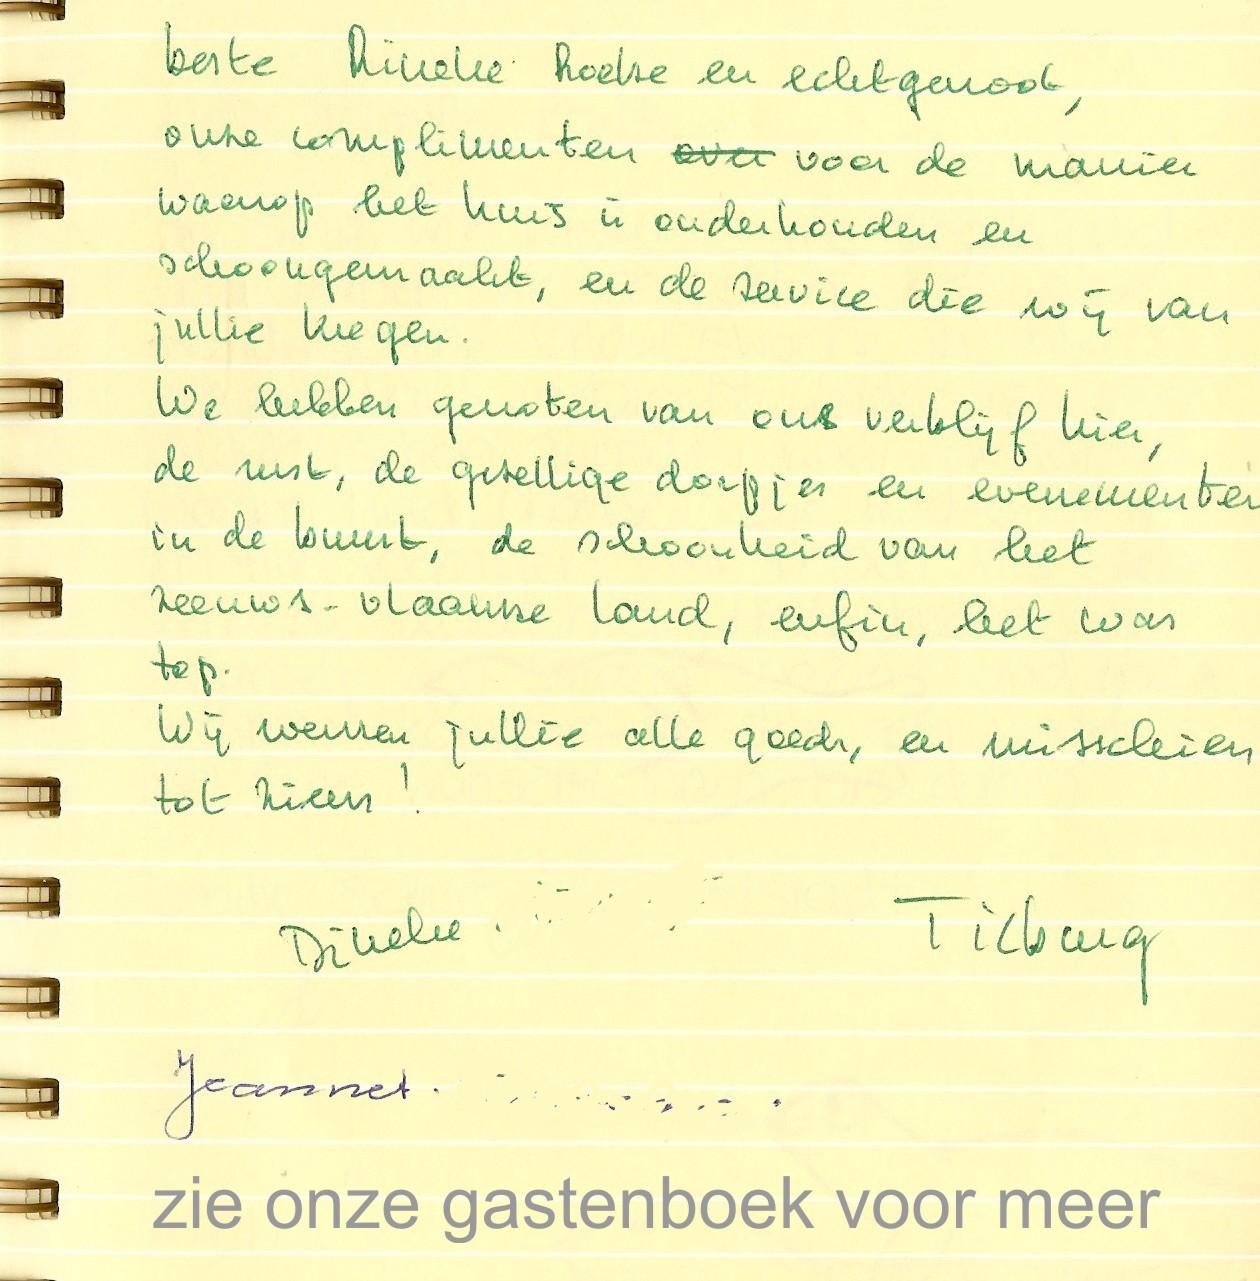 beste Rineke Roelse en echtgenoot,
onze complimenten over voor de manier
waarop het huis is onderhouden en
schoongemaakt, en de service die wij van
jullie kregen.
We hebben genoten van ons verblijf hier,
de rust, de gezellige dorpjes en evenementen
in de buurt, de schoonheid van het
zeeuws-vlaamse land, enfin, het was
top.
Wij wensen jullie alle goeds, en misschien
tot ziens!
Dineke Tilburg
Jeannet.
zie onze gastenboek voor meer